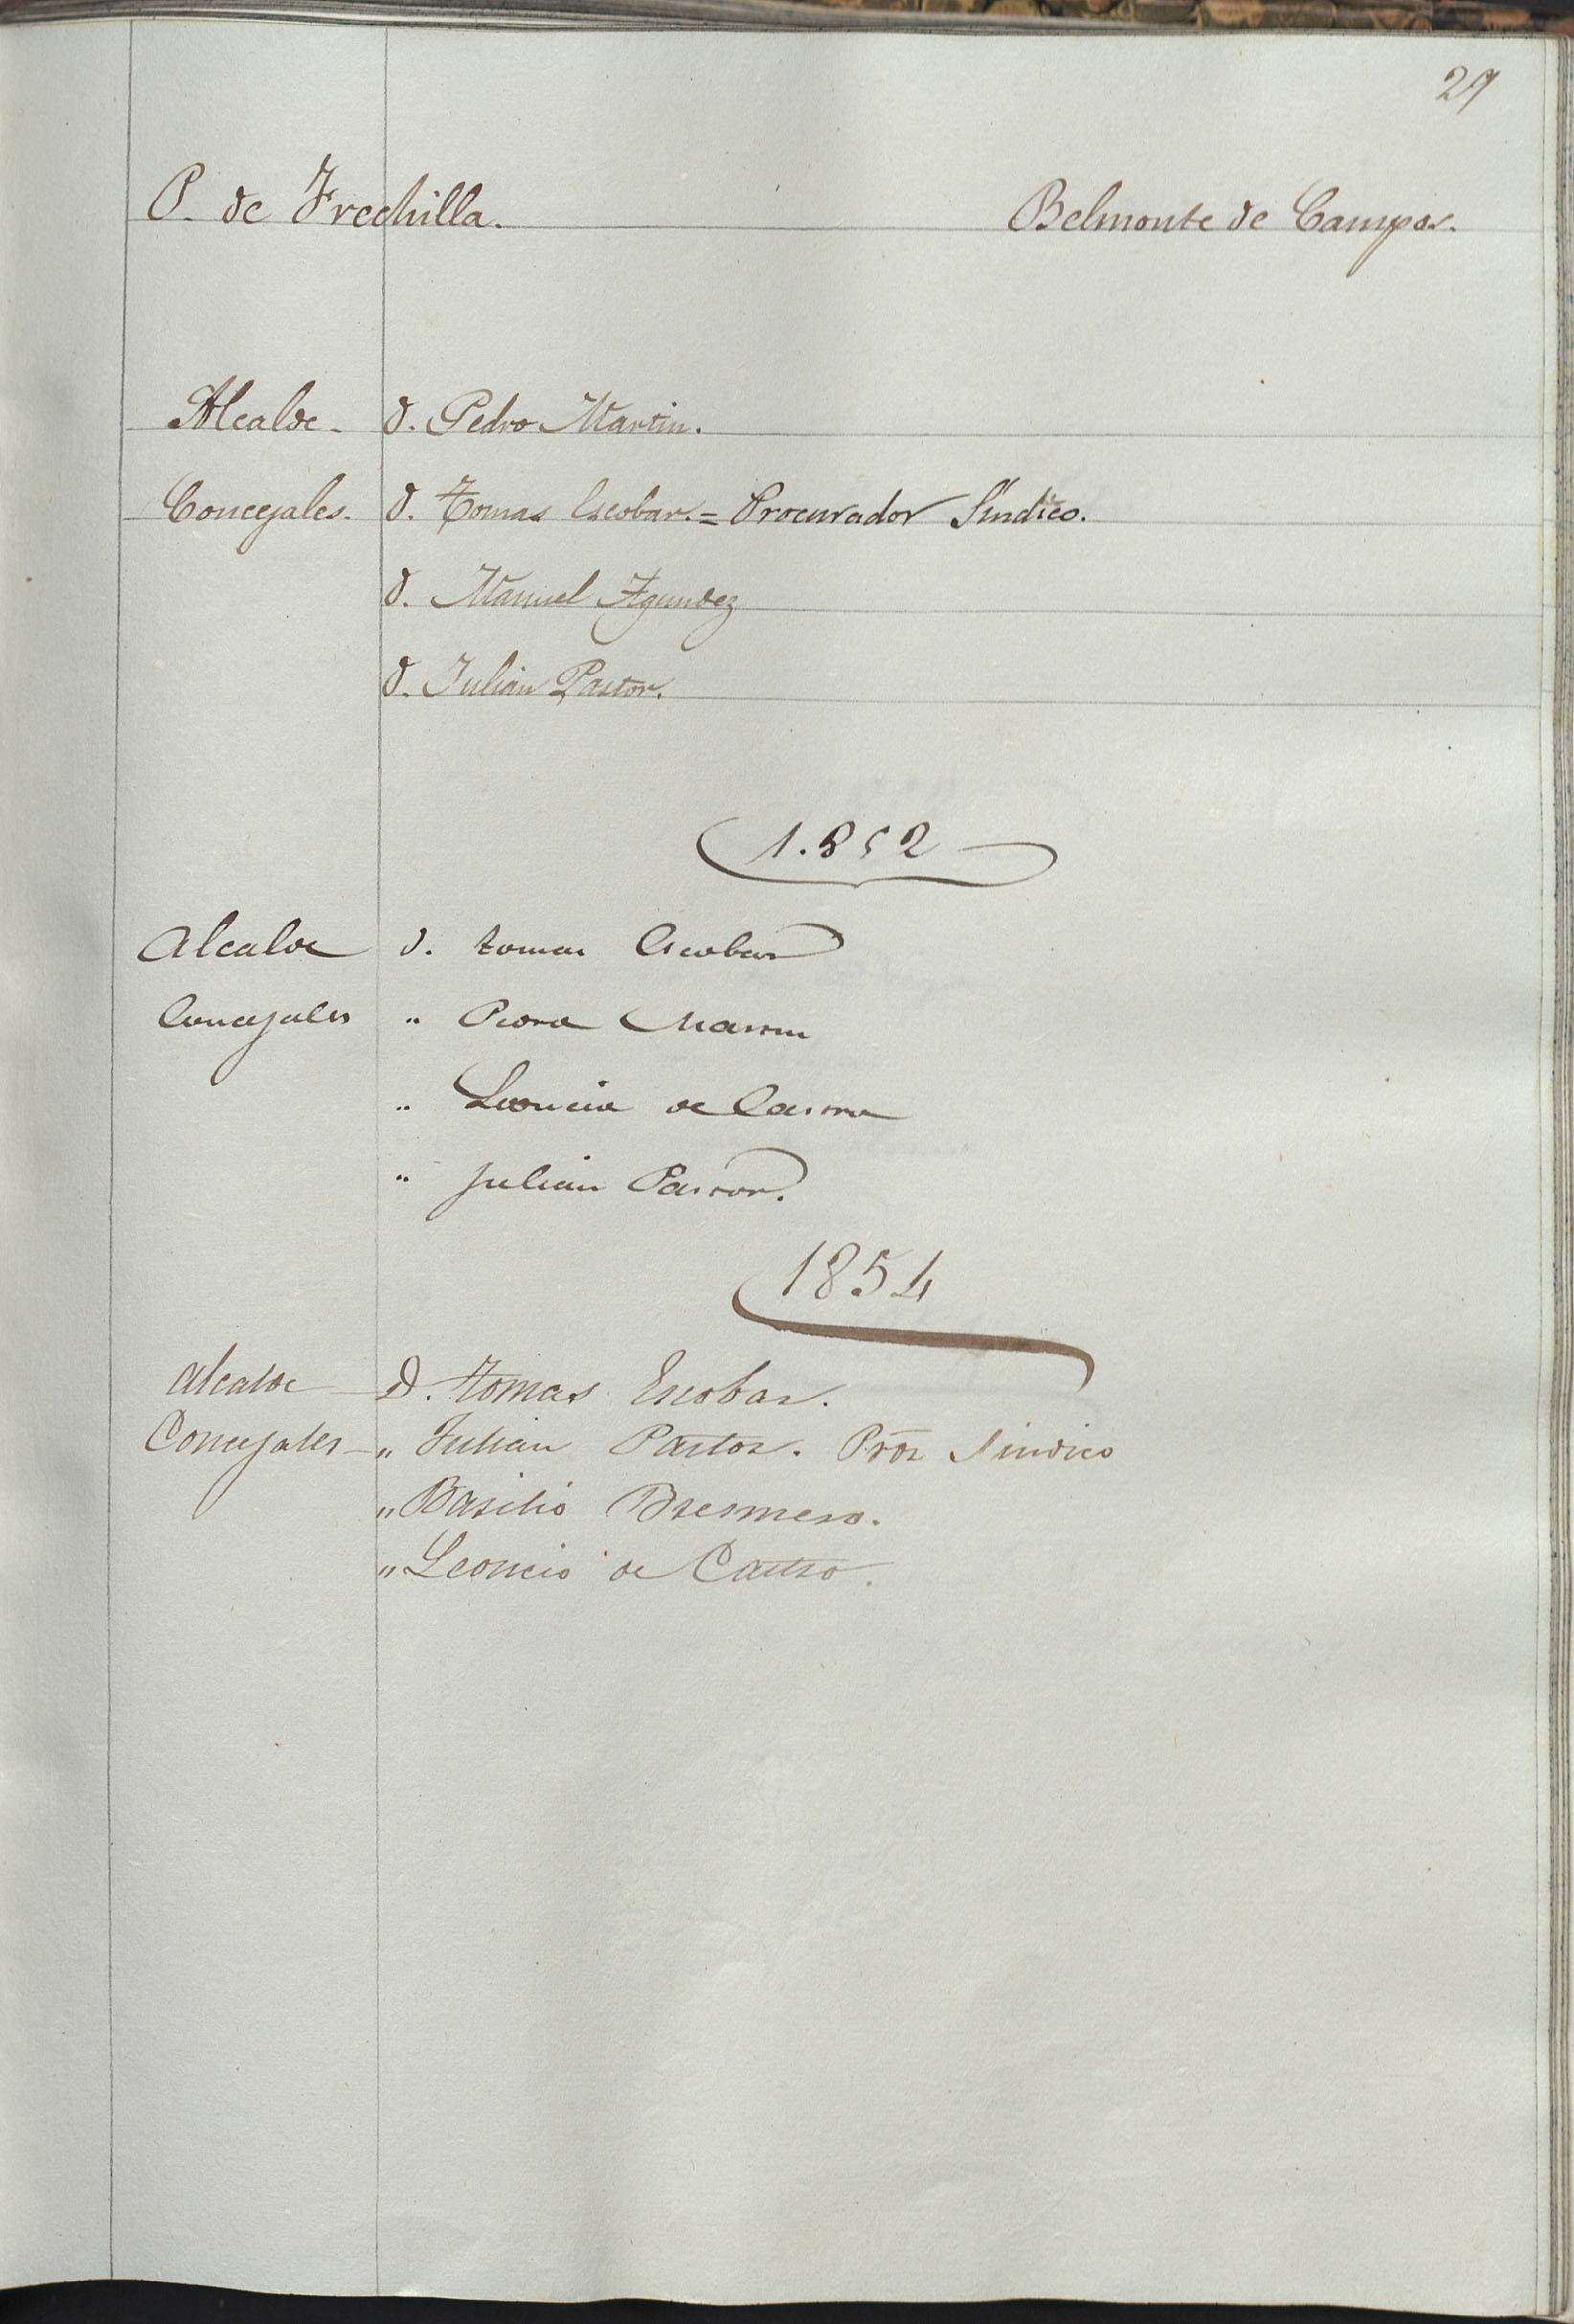 29
P. de Frechilla. Belmonte de Campos.
Alcalde - D. Pedro Martin.
Concejales. D. Tomas Escobar. = Procurador Sindico.
D. Manuel Agundez
D. Julian Pastor.
1.852
Alcalde D. Tomas Escobar
Concejales " Pedro Martin
" Leoncio de Castro
" Julian Pastor.
1854
Alcalde D. Tomas Escobar.
Concejales - " Julian Pastor. Pror Sindico
" Basilio Bresmero.
" Leoncio de Castro.